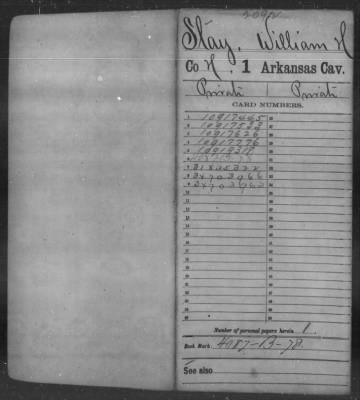 Stay, William H
Co H, 1 Arkansas Cav.
Private | Private
CARD NUMBERS.
1 10917465
2 10917533
3 10917626
4 10917776
5 10919317
6
7 31825322
8 34703966
9 34703963
10
Number of personal papers herein 1
Book Mark: 4987-B-78
See also